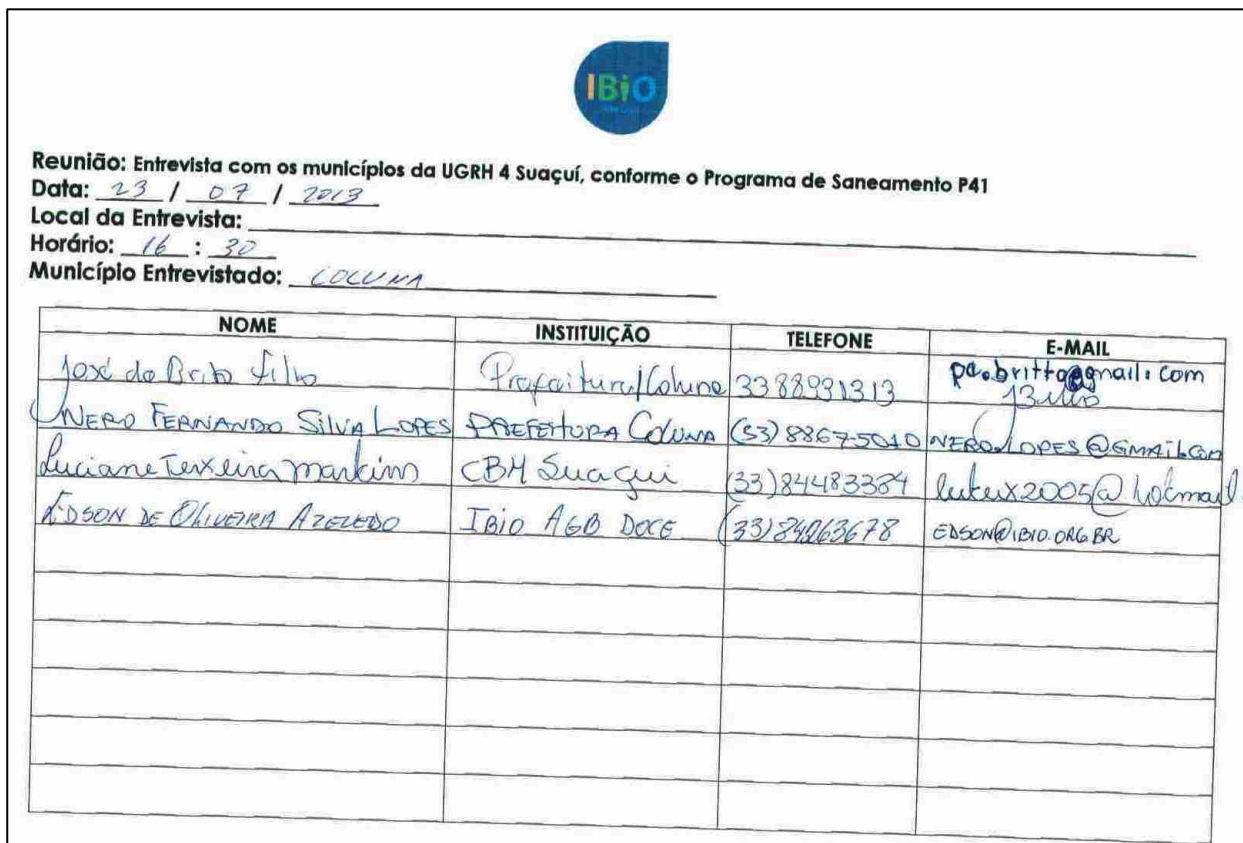 IBiO
Reunião: Entrevista com os municípios da UGRH 4 Suaçuí, conforme o Programa de Saneamento P41
Data: 23 / 07 / 2013
Local da Entrevista:
Horário: 16 : 30
Município Entrevistado: COLUNA
NOME INSTITUIÇÃO TELEFONE E-MAIL
José de Brito Filho Prefeitura/Coluna 3388931313 pc.britto@gmail.com
NERO FERNANDO SILVA LOPES PREFEITURA COLUNA (33) 8867-5010 NERO.LOPES@GMAIL.COM
Luciane Teixeira Martins CBH Suaçui (33)84483384 luteix2005@hotmail.
EDSON DE OLIVEIRA AZEVEDO IBIO AGB DOCE (33)84263678 EDSON@IBIO.ORG.BR